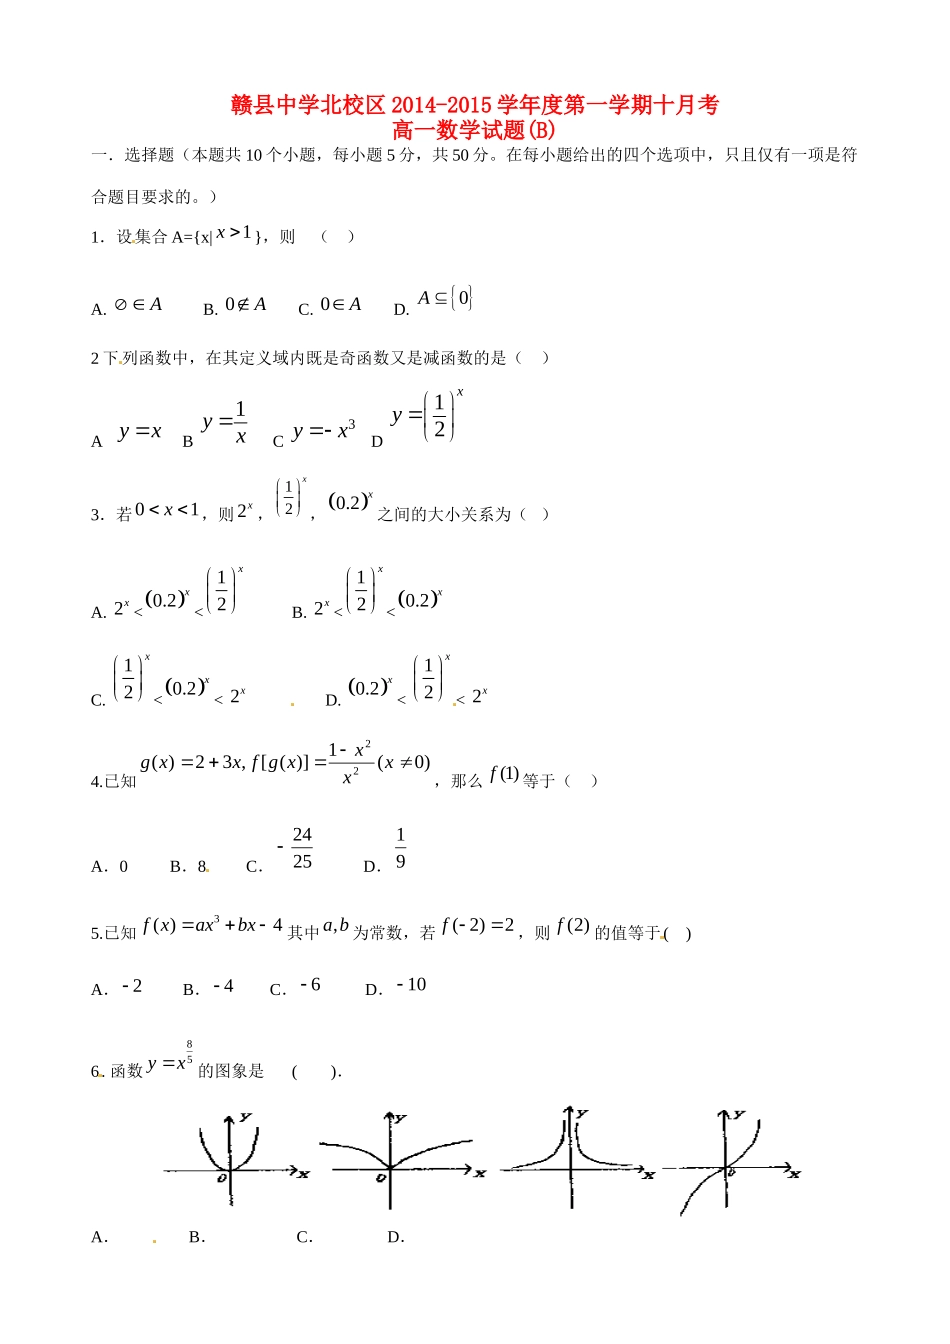 赣县中学北校区 2014-2015 学年度第一学期十月考
高一数学试题(B)
一．选择题（本题共 10 个小题，每小题 5 分，共 50 分。在每小题给出的四个选项中，只且仅有一项是符
合题目要求的。）
1．设集合 A={x| x > 1 }，则 （ ）
A. ∅ ∈ A B. 0 ∉ A C. 0 ∈ A D. A ⊆ {0}
2 下列函数中，在其定义域内既是奇函数又是减函数的是（ ）
A y = x B y = 1/x C y = − x³ D y = (1/2)^x
3．若 0 < x < 1，则 2^x ，(1/2)^x ，(0.2)^x 之间的大小关系为（ ）
A. 2^x < (0.2)^x < (1/2)^x B. 2^x < (1/2)^x < (0.2)^x
C. (1/2)^x < (0.2)^x < 2^x D. (0.2)^x < (1/2)^x < 2^x
4.已知 g(x) = 2 + 3x, f[g(x)] = (1 − x²)/x² (x ≠ 0) ，那么 f(1) 等于（ ）
A．0 B．8 C． − 24/25 D． 1/9
5.已知 f(x) = ax³ + bx − 4 其中 a,b 为常数，若 f(− 2) = 2 ，则 f(2) 的值等于( )
A． − 2 B． − 4 C． − 6 D． − 10
6．函数 y = x^(8/5) 的图象是 ( )．
y x O y x O y x y x O
A． B． C． D．